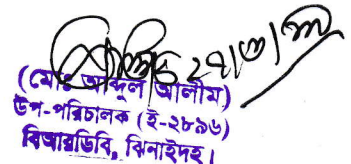 ২৭।৩।
(মোঃ আব্দুল আলীম)
উপ-পরিচালক (ই-২৮৯৬)
বিআরডিবি, ঝিনাইদহ।